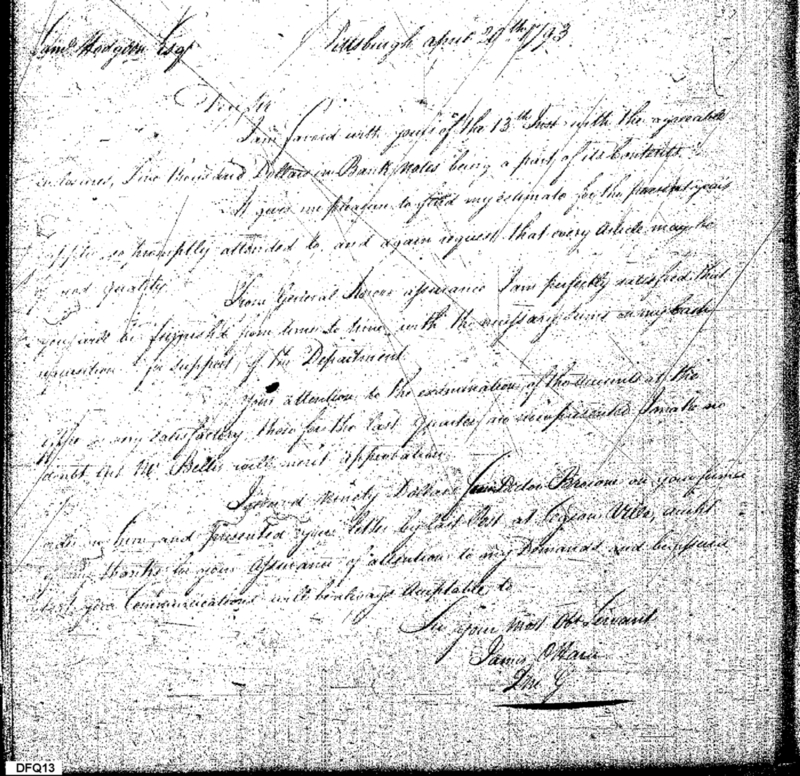 Saml Hodgdon Esqr Pittsburgh april 20th 1793
Dear Sir
I am favored with yours of the 13th Inst with the agreeable
enclosures, Two thousand Dollars in Bank Notes being a part of its Contents.
It gives me pleasure to find my estimate for the present years
supplies so promptly attended to, and again request that every Article may be
of good quality
From General Knoxs assurance I am perfectly satisfied that
you will be furnished from time to time with the necessary sums on my
requisition for support of the Department
Your attention to the examination of the accounts at the
Office is very satisfactory, those for the last Quarter, are now presented I make no
doubt but Mr Bellis will merit approbation
I received Ninety Dollars from Doctor Brown on your
order on him and presented your letter by last Post at Legion Ville, accept
of my thanks for your Assurance of attention to my Demands and be assured
that your Communications will be always Acceptable to
Sir your most Obt Servant
James OHara
QM G
DFQ13